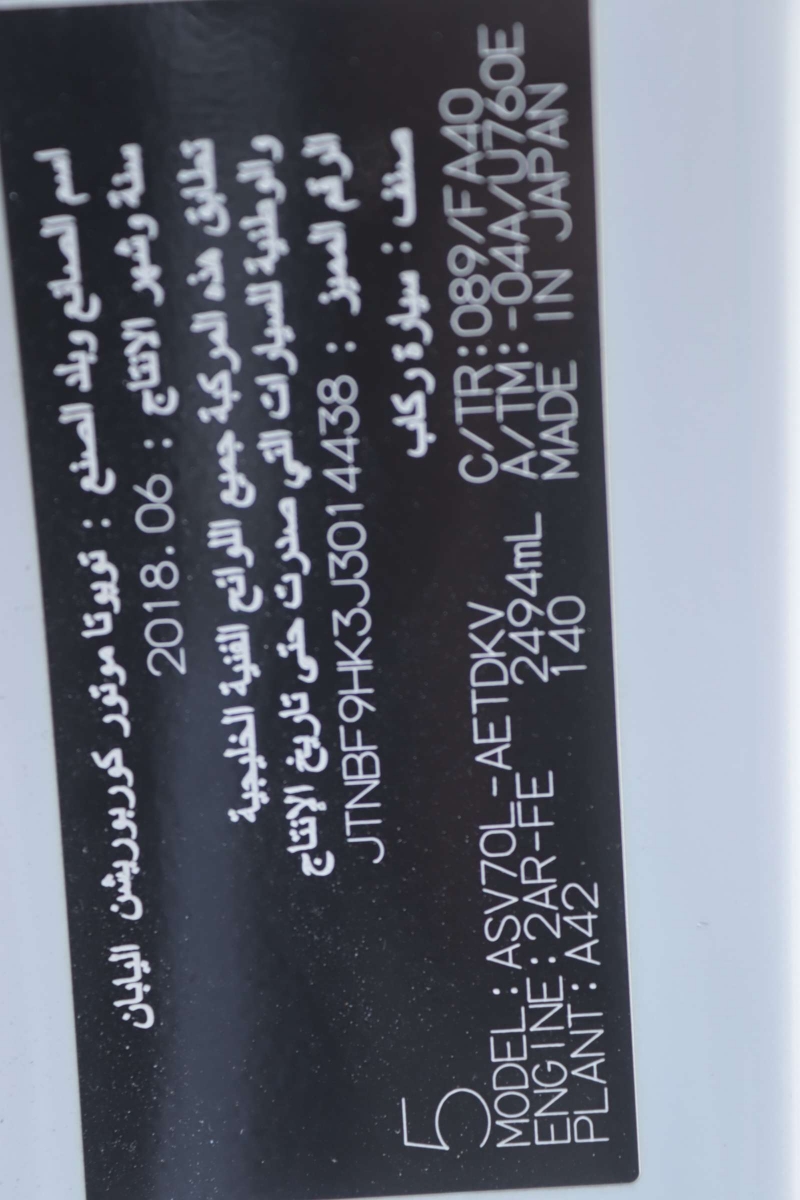 اسم الصانع وبلد الصنع : تويوتا موتور كوربوريشن اليابان
سنة وشهر الانتاج : 2018.06
تطابق هذه المركبة جميع اللوائح الفنية الخليجية
والوطنية للسيارات التي صدرت حتى تاريخ الإنتاج
الرقم المميز : JTNBF9HK3J3014438
صنف : سيارة ركاب
5
MODEL : ASV70L-AETDKV C/TR : 089/FA40
ENGINE : 2AR-FE 2494mL A/TM : -04A/U760E
PLANT : A42 140 MADE IN JAPAN